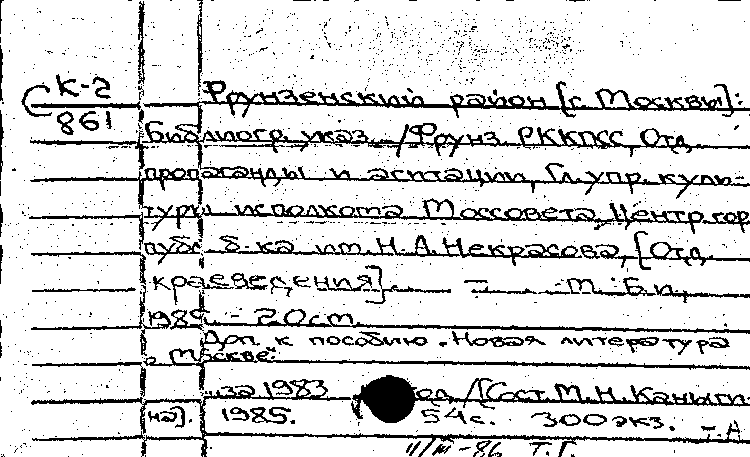 К-2
861
Фрунзенский район [г. Москвы]:
Библиогр. указ. /Фрунз. РККПСС, Отд.
пропаганды и агитации, Гл. упр. куль-
туры исполкома Моссовета, Центр. гор.
публ. б-ка им. Н.А. Некрасова, [Отд.
краеведения]. — М.: Б.и.,
198 . - 20 см.
Доп. к пособию "Новая литература
о Москве".
...за 1983 год /[Сост. М.Н. Каныги-
на]. 1985. 54 с. 300 экз. - Т.А
11/III-86 Т.Г.